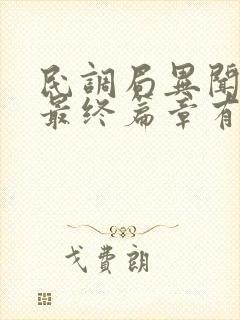 民調局異聞
最终篇章有
戈費朗